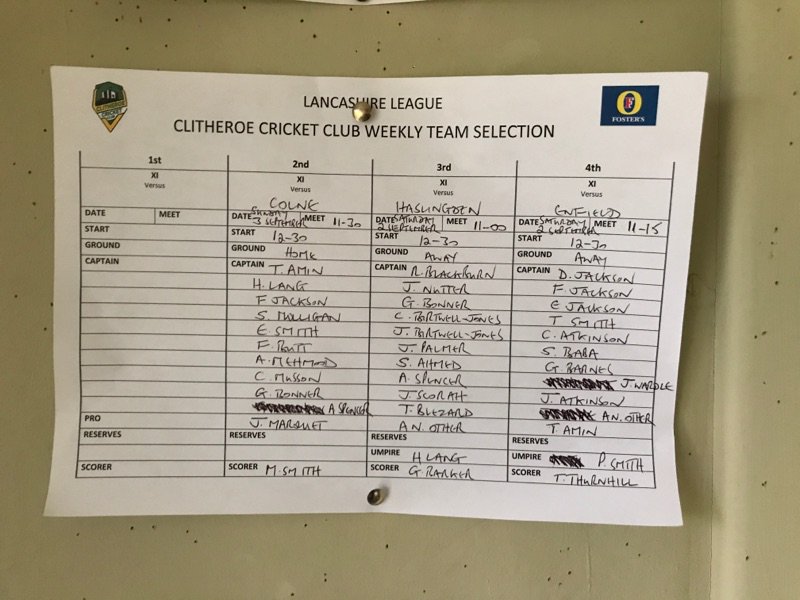 CLITHEROE
LANCASHIRE LEAGUE
FOSTER'S
CLITHEROE CRICKET CLUB WEEKLY TEAM SELECTION
1st 2nd 3rd 4th
XI XI XI XI
Versus Versus Versus Versus
COLNE HASLINGDEN ENFIELD
DATE MEET DATE SUNDAY 3 SEPTEMBER MEET 11-30 DATE SATURDAY 2 SEPTEMBER MEET 11-00 DATE SATURDAY 2 SEPTEMBER MEET 11-15
START START 12-30 START 12-30 START 12-30
GROUND GROUND HOME GROUND AWAY GROUND AWAY
CAPTAIN CAPTAIN T. AMIN CAPTAIN R. BLACKBURN CAPTAIN D. JACKSON
H. LANG J. NUTTER F. JACKSON
F JACKSON G. BONNER E JACKSON
S. MULLIGAN C. BARTWELL-JONES T SMITH
E. SMITH J. BARTWELL-JONES C. ATKINSON
F. BUTT J. PALMER S. BABA
A. MEHMOOD S. AHMED G. BARNES
C. MUSSON A. SPENCER J. WARDLE
G. BONNER J. SCORAH J. ATKINSON
A SPENCER T. BLEZARD A N. OTHER
PRO J. MARQUET A N. OTHER T. AMIN
RESERVES RESERVES RESERVES RESERVES
UMPIRE H LANG UMPIRE P. SMITH
SCORER SCORER M. SMITH SCORER G. BARKER SCORER T. THURNHILL